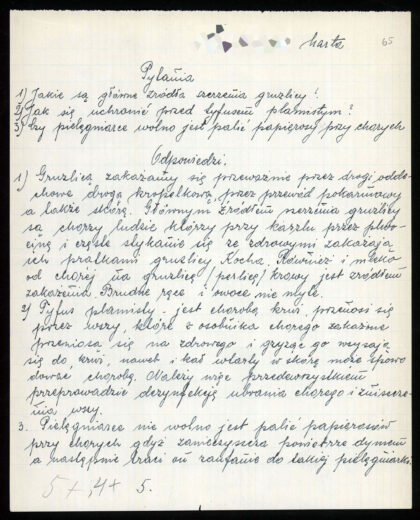 Marta 65
Pytania
1) Jakie są główne źródła szerzenia gruźlicy?
2) Jak się uchronić przed tyfusem plamistym?
3) Czy pielęgniarce wolno jest palić papierosy przy chorych
Odpowiedzi.
1) Gruźlicą zakażamy się przeważnie przez drogi odde-
chowe drogą kropelkową, przez przewód pokarmowy
a także skórę. Głównym źródłem szerzenia gruźlicy
są chorzy ludzie którzy przy kaszlu przez plwo-
cinę i częste stykanie się ze zdrowymi zakażają
ich prątkami gruźlicy Kocha. Również i mleko
od chorej na gruźlicę (perlicę) krowy jest źródłem
zakażenia. Brudne ręce i owoce nie myte.
2) Tyfus plamisty - jest chorobą krwi, przenosi się
przez wszy, które z osobnika chorego zakaźnie
przenoszą się na zdrowego i gryząc go wsysają
się do krwi, nawet i kał wtarty w skórę może spowo
dować chorobę. Należy więc przedewszystkiem
przeprowadzić dezynfekcję ubrania chorego i zniszcze-
nia wszy.
3. Pielęgniarce nie wolno jest palić papierosów
przy chorych gdyż zanieczyszcza powietrze dymem
a następnie traci on zaufanie do takiej pielęgniarki.
5+, 4+ 5.